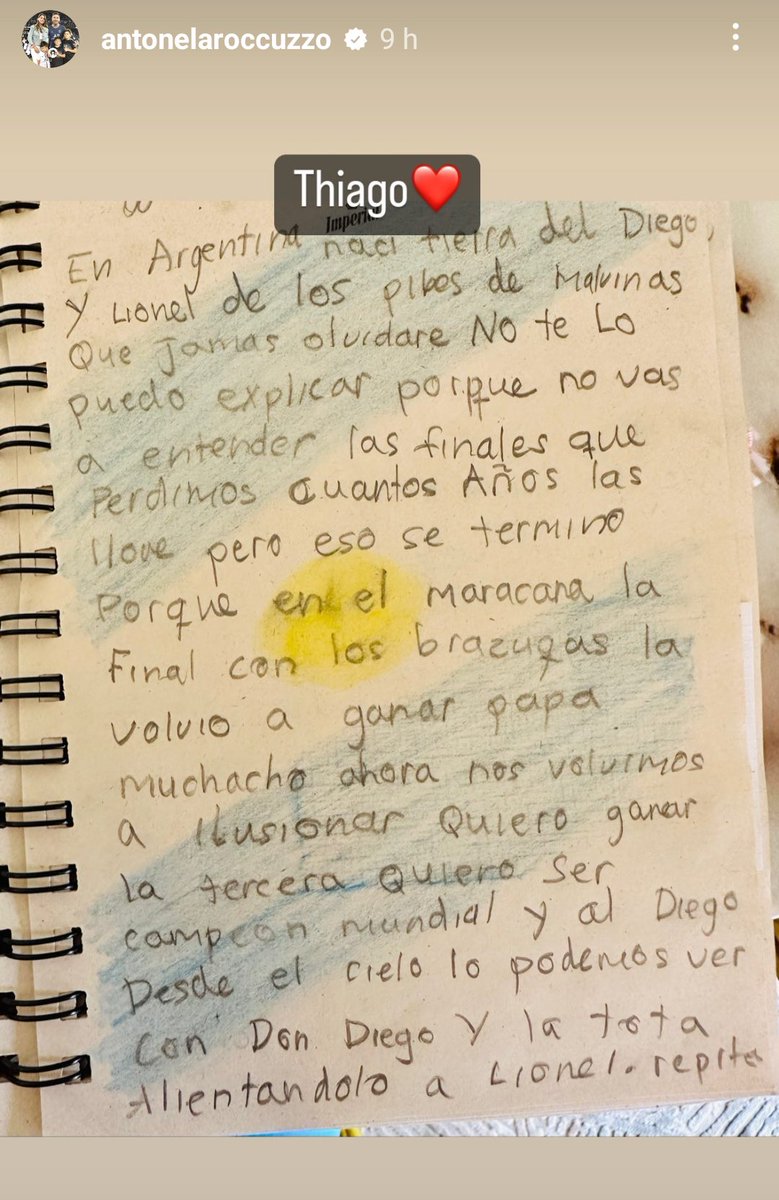 antonelaroccuzzo 9 h
Thiago❤️
Imperia
En Argentina naci tierra del Diego,
y Lionel de los pibes de Malvinas
Que jamas olvidare NO te Lo
puedo explicar porque no vas
a entender las finales que
Perdimos cuantos Años las
llove pero eso se termino
Porque en el maracana la
Final con los brazugas la
volvio a ganar papa
muchacho ahora nos volvimos
a Ilusionar Quiero ganar
la tercera Quiero ser
campeon mundial y al Diego
Desde el cielo lo podemos ver
con Don Diego y la tota
Alientandolo a Lionel. repite